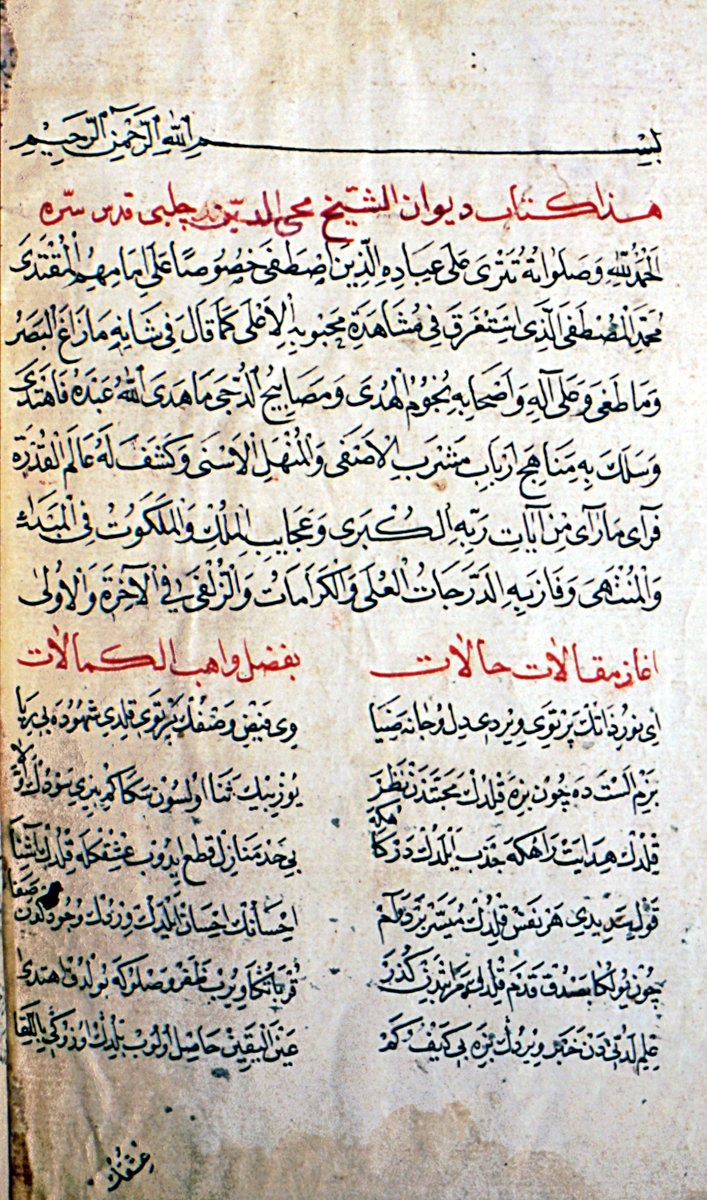 بسم الله الرحمن الرحيم
هذا كتاب ديوان الشيخ محي الدين چلبى قدس سره
الحمد لله وصلواته تترى على عباده الذين اصطفى خصوصا على امامهم المقتدى
محمد المصطفى الذى استغرق فى مشاهدة محبوبه الاعلى كما قال فى شانه ما زاغ البصر
وما طغى وعلى آله واصحابه نجوم الهدى ومصابيح الدجى ما هدى الله عبده فاهتدى
وسلك به مناهج ارباب مشرب الاصفى والمنهل الاسنى وكشف له عالم القدرة
فرآى ما رآى من آيات ربه الكبرى وعجايب الملك والملكوت فى المبتداء
والمنتهى وفاز به الدرجات العلى والكرامات والزلفى فى الآخرة والاولى
اغاز مقالات حالات بفضل واهب الكمالات
اى نور ذاتك پرتوى ويردى دل وجانه ضيا وى فيض وصفك پرتوى قلدى شهوده بى ريا
بزم الست ده چون بزه قلدك محبتدن نظر يوز بيك ثنا اولسون سكا كم بزى سودك
قلدك هدايت راهكه جذب ايلدك دركا هكه بى حد منازل قطع ايدوب عشقكله قلدك آشنا
هر نفس قلدك ميسر بزه احسانك احسان ايلدك وجود
چون يولكا بصدق قدم قربتكا ويرب ظفر وصلوكه بولدق اهتدى
علم لدنى دن خبر ويردك بزه بى كيف وكم عين اليقين حاصل اولوب بلدك باللقا
عشقك